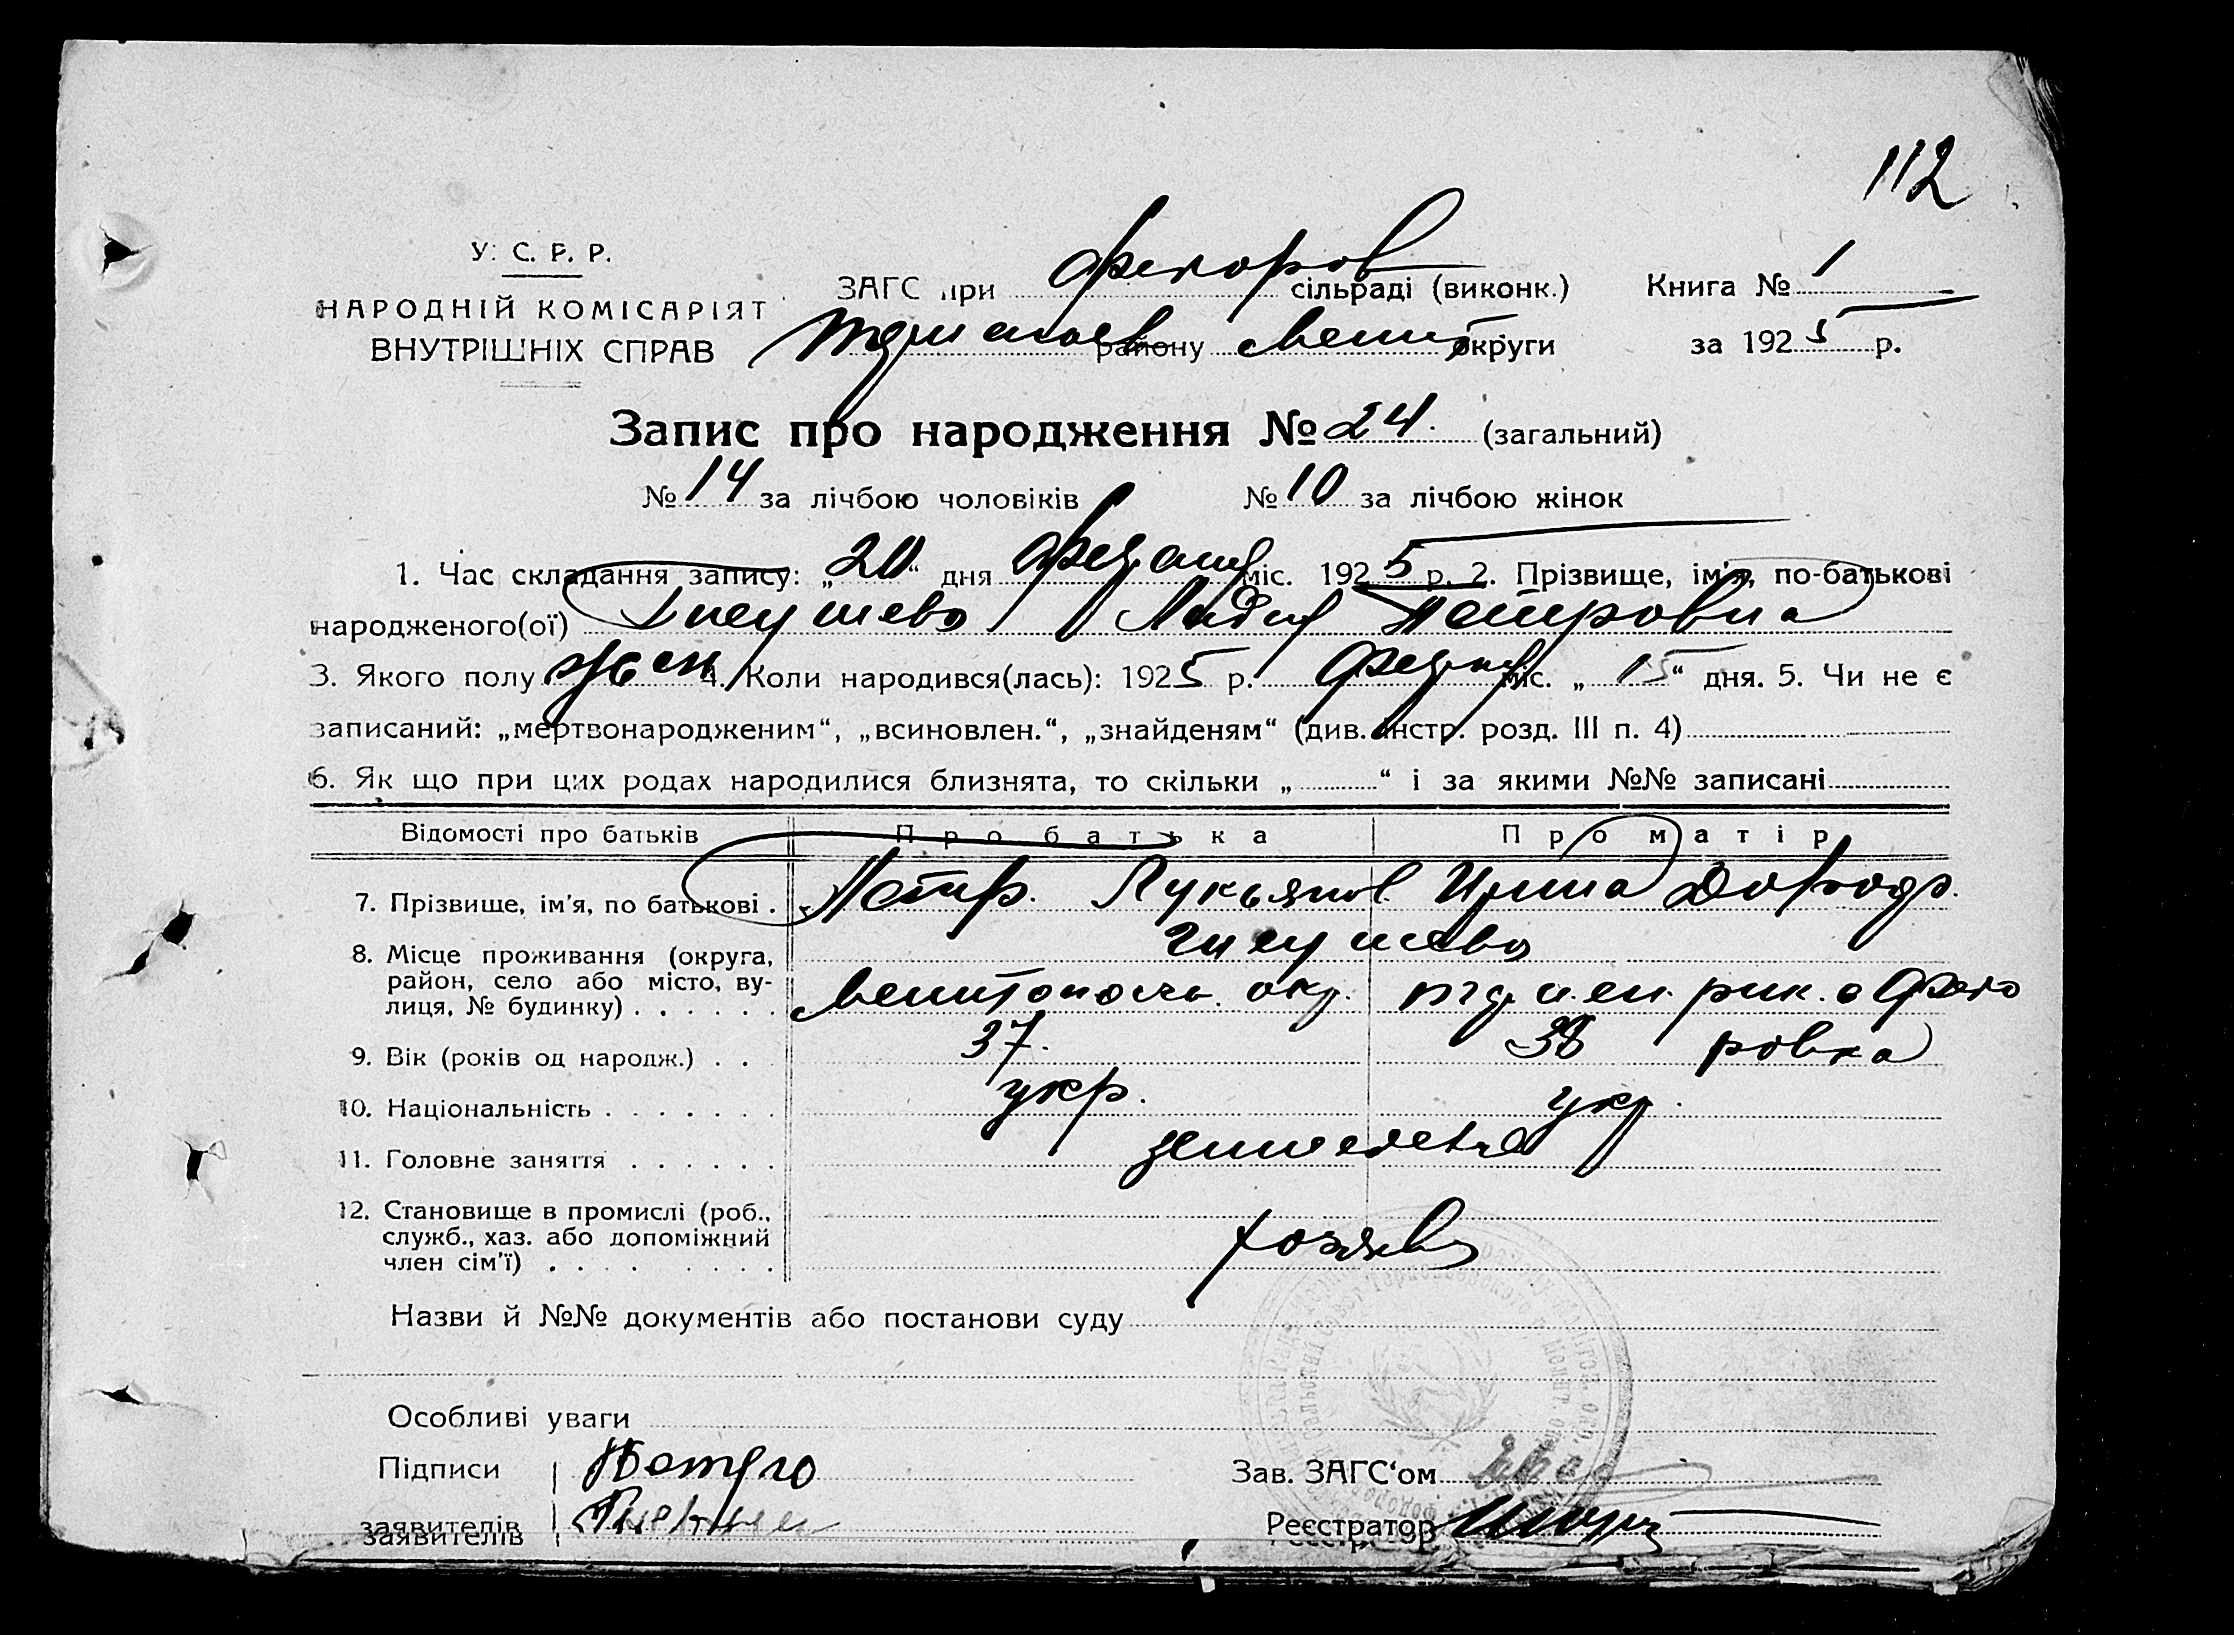 112
У. С. Р. Р.
НАРОДНІЙ КОМІСАРІЯТ
ВНУТРІШНІХ СПРАВ
ЗАГС при Федоров сільраді (виконк.) Книга № 1
району Мелит округи за 1925 р.
Запис про народження № 24. (загальний)
№ 14 за лічбою чоловіків № 10 за лічбою жінок
1. Час складання запису: „20“ дня міс. 1925 р. 2. Прізвище, ім'я, по-батькові
народженого(ої) Лидия Петровна
3. Якого полу жен 4. Коли народився(лась): 1925 р. міс. „15“ дня. 5. Чи не є
записаний: „мертвонародженим“, „всиновлен.“, „знайденям“ (див. інстр. розд. III п. 4)
6. Як що при цих родах народилися близнята, то скільки „ “ і за якими №№ записані
Відомості про батьків Про батька Про матір
7. Прізвище, ім'я, по батькові . Петр. Лукьянов. Ирина
8. Місце проживання (округа,
район, село або місто, ву-
лиця, № будинку) . . . . . . Мелитополь. окр. рик. с Федо
9. Вік (років од народж.) . . 37. 38 ровка
10. Національність . . . . . . . укр. укр.
11. Головне заняття . . . . . .
12. Становище в промислі (роб.,
служб., хаз. або допоміжний
член сім'ї) . . . . . . . . хозяева
Назви й №№ документів або постанови суду
Особливі уваги
Підписи Зав. ЗАГС‘ом
заявителів Реєстратор